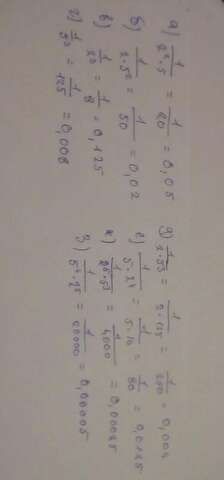 а) 1/2²·5 = 1/20 = 0,05
б) 1/2·5² = 1/50 = 0,02
в) 1/2³ = 1/8 = 0,125
г) 1/5³ = 1/125 = 0,008
д) 1/2·5³ = 1/2·125 = 1/250 = 0,004
е) 1/5·2⁴ = 1/5·16 = 1/80 = 0,0125
ж) = 1/4000 = 0,00025
з) 1/5⁴·2⁵ = = 0,00005